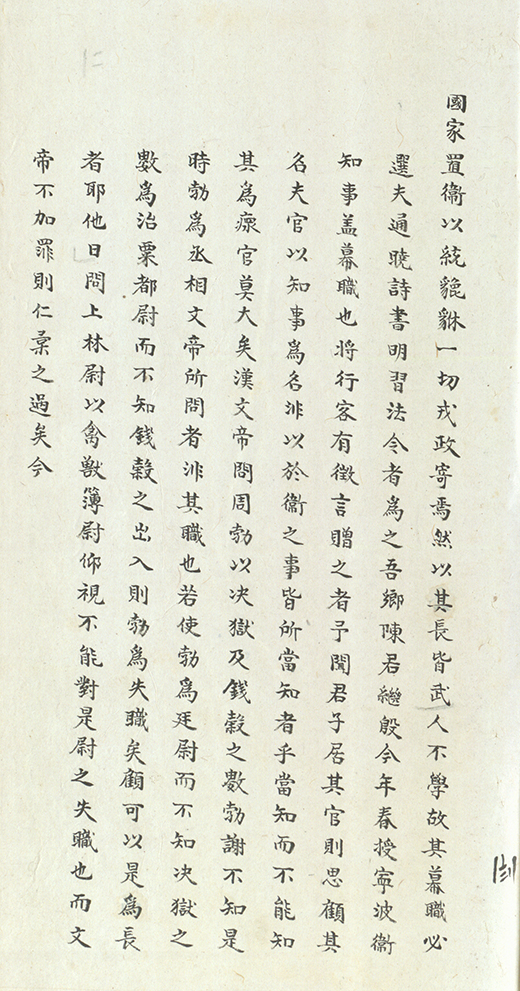 國家置衞以統貔貅一切戎政寄焉然以其長皆武人不學故其幕職必
選夫通曉詩書明習法令者為之吾鄉陳君繼殷今年春授寧波衞
知事盖幕職也将行客有徵言贈之者予聞君子居其官則思顧其
名夫官以知事為名非以於衞之事皆所當知者乎當知而不能知
其為瘝官莫大矣漢文帝問周勃以决獄及錢榖之數勃謝不知是
時勃為丞相文帝所問者非其職也若使勃為廷尉而不知决獄之
數為治粟都尉而不知錢榖之出入則勃為失職矣顧可以是為長
者耶他日問上林尉以禽獸簿尉仰視不能對是尉之失職也而文
帝不加罪則仁柔之過矣今